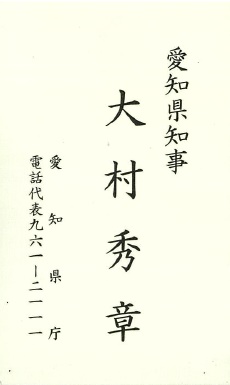 愛知県知事
大村秀章
愛知県庁
電話代表九六一ー二一一一